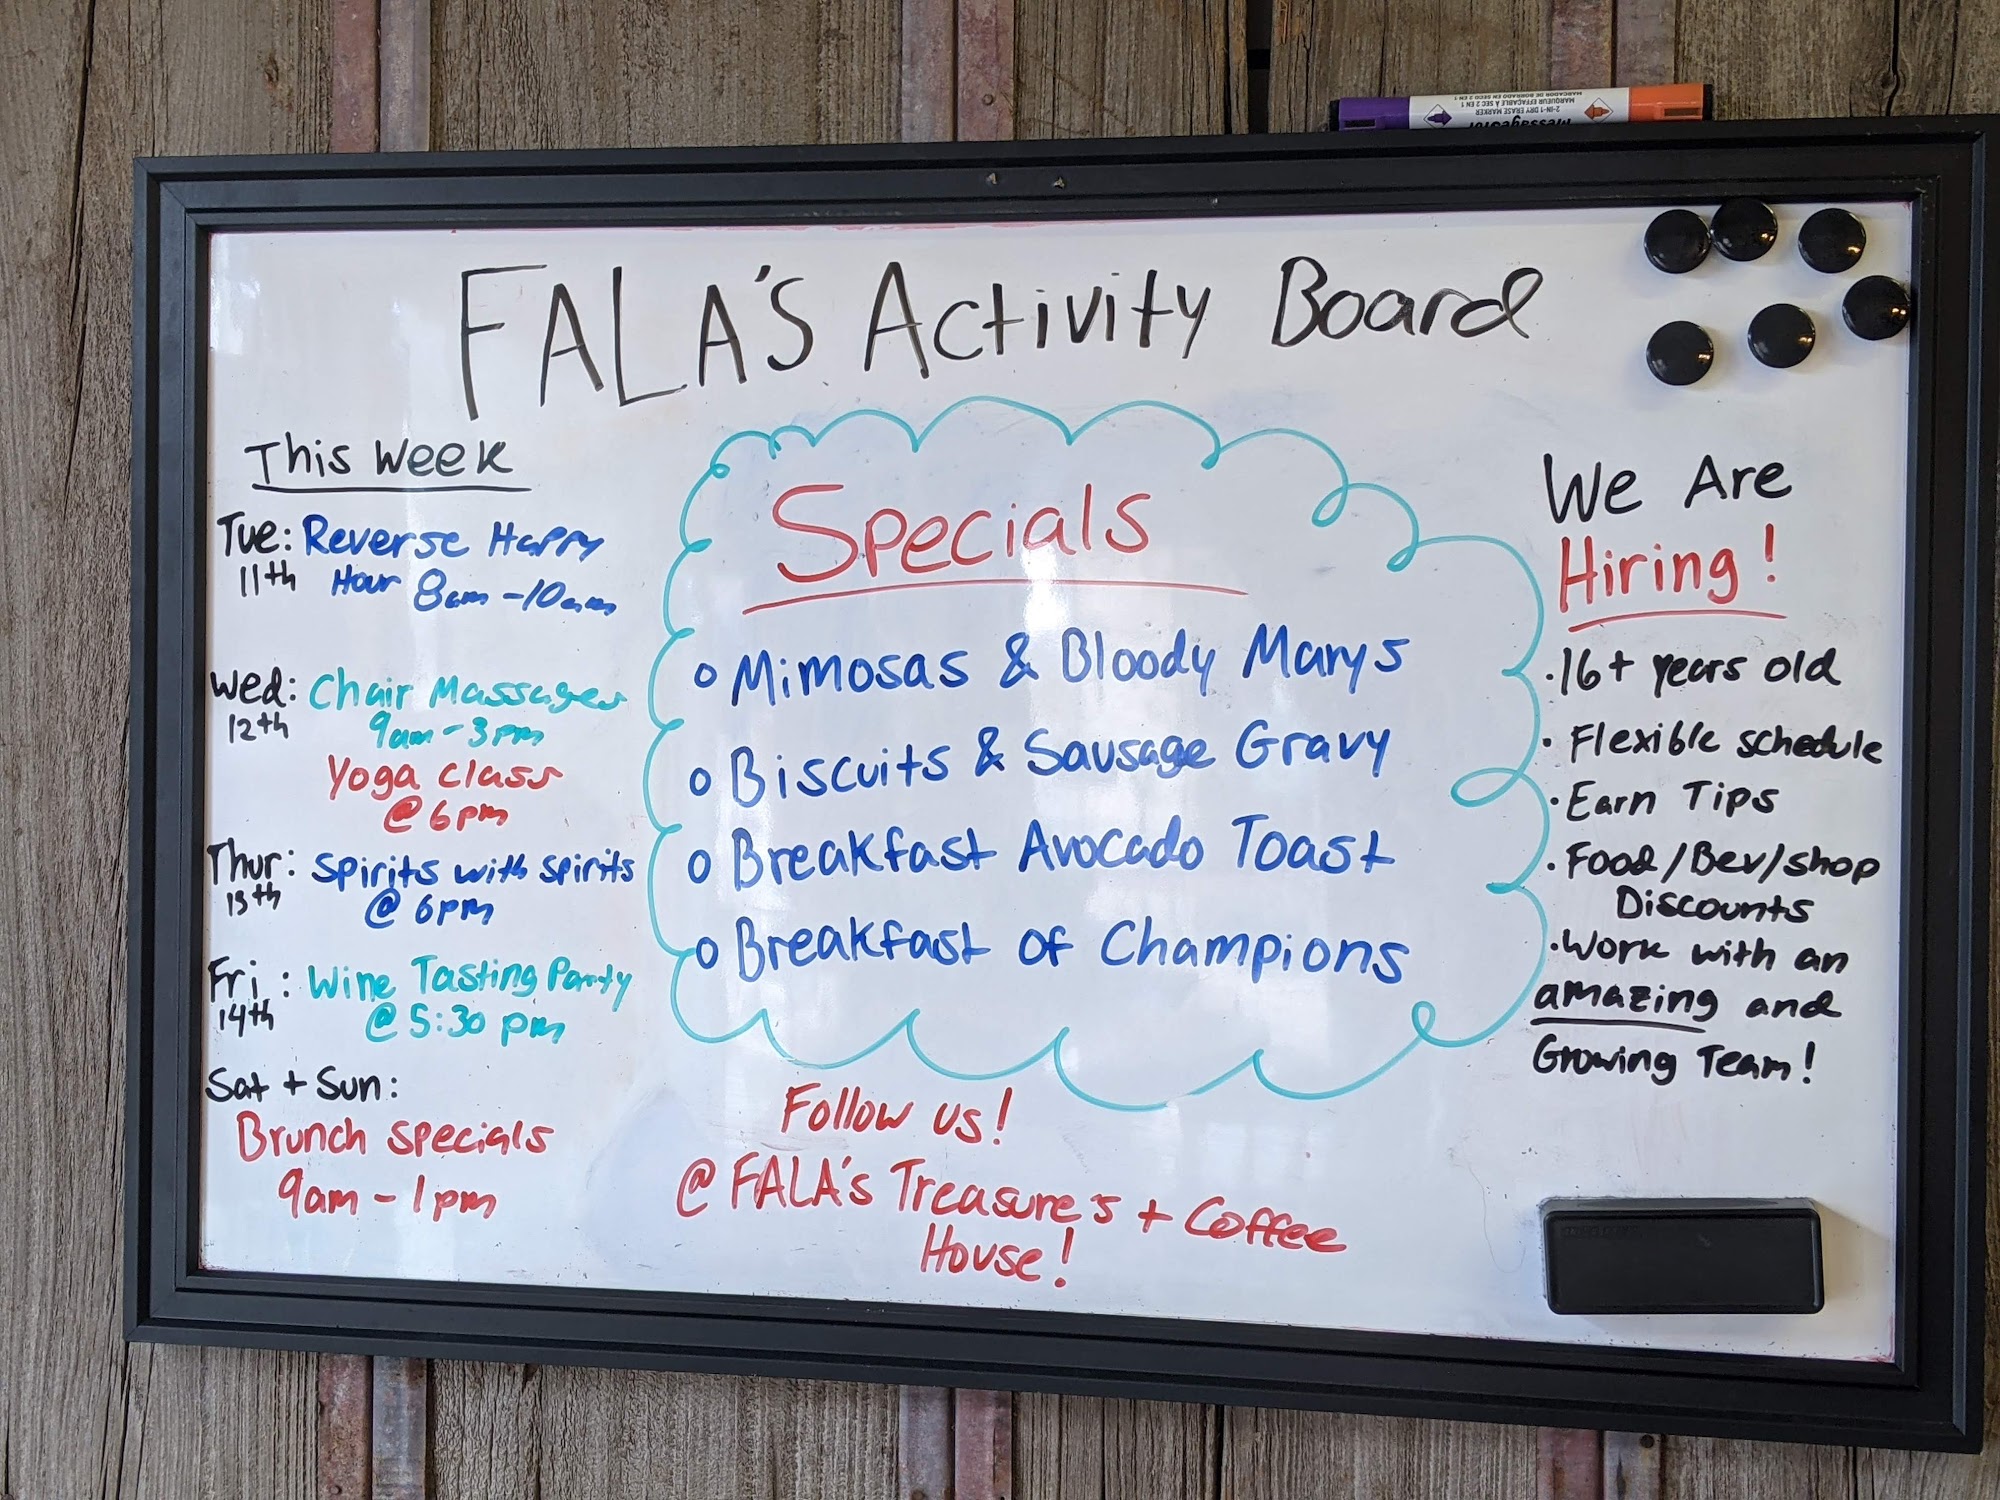 FALA'S Activity Board
This Week
Tue: Reverse Happy
11th Hour 8am-10am
Wed: Chair Massages
12th 9am-3pm
Yoga class
@ 6pm
Thur: Spirits with Spirits
13th @ 6pm
Fri: Wine Tasting Party
14th @ 5:30 pm
Sat + Sun:
Brunch specials
9am - 1pm
Specials
Mimosas & Bloody Marys
Biscuits & Sausage Gravy
Breakfast Avocado Toast
Breakfast of Champions
Follow us!
@ FALA's Treasure's + Coffee
House!
We Are
Hiring!
· 16+ years old
· Flexible schedule
· Earn Tips
· Food/Bev/shop
Discounts
· Work with an
amazing and
Growing Team!
2-IN-1 DRY ERASE MARKER
MARQUEUR EFFAÇABLE À SEC 2 EN 1
MARCADOR DE BORRADO EN SECO 2 EN 1